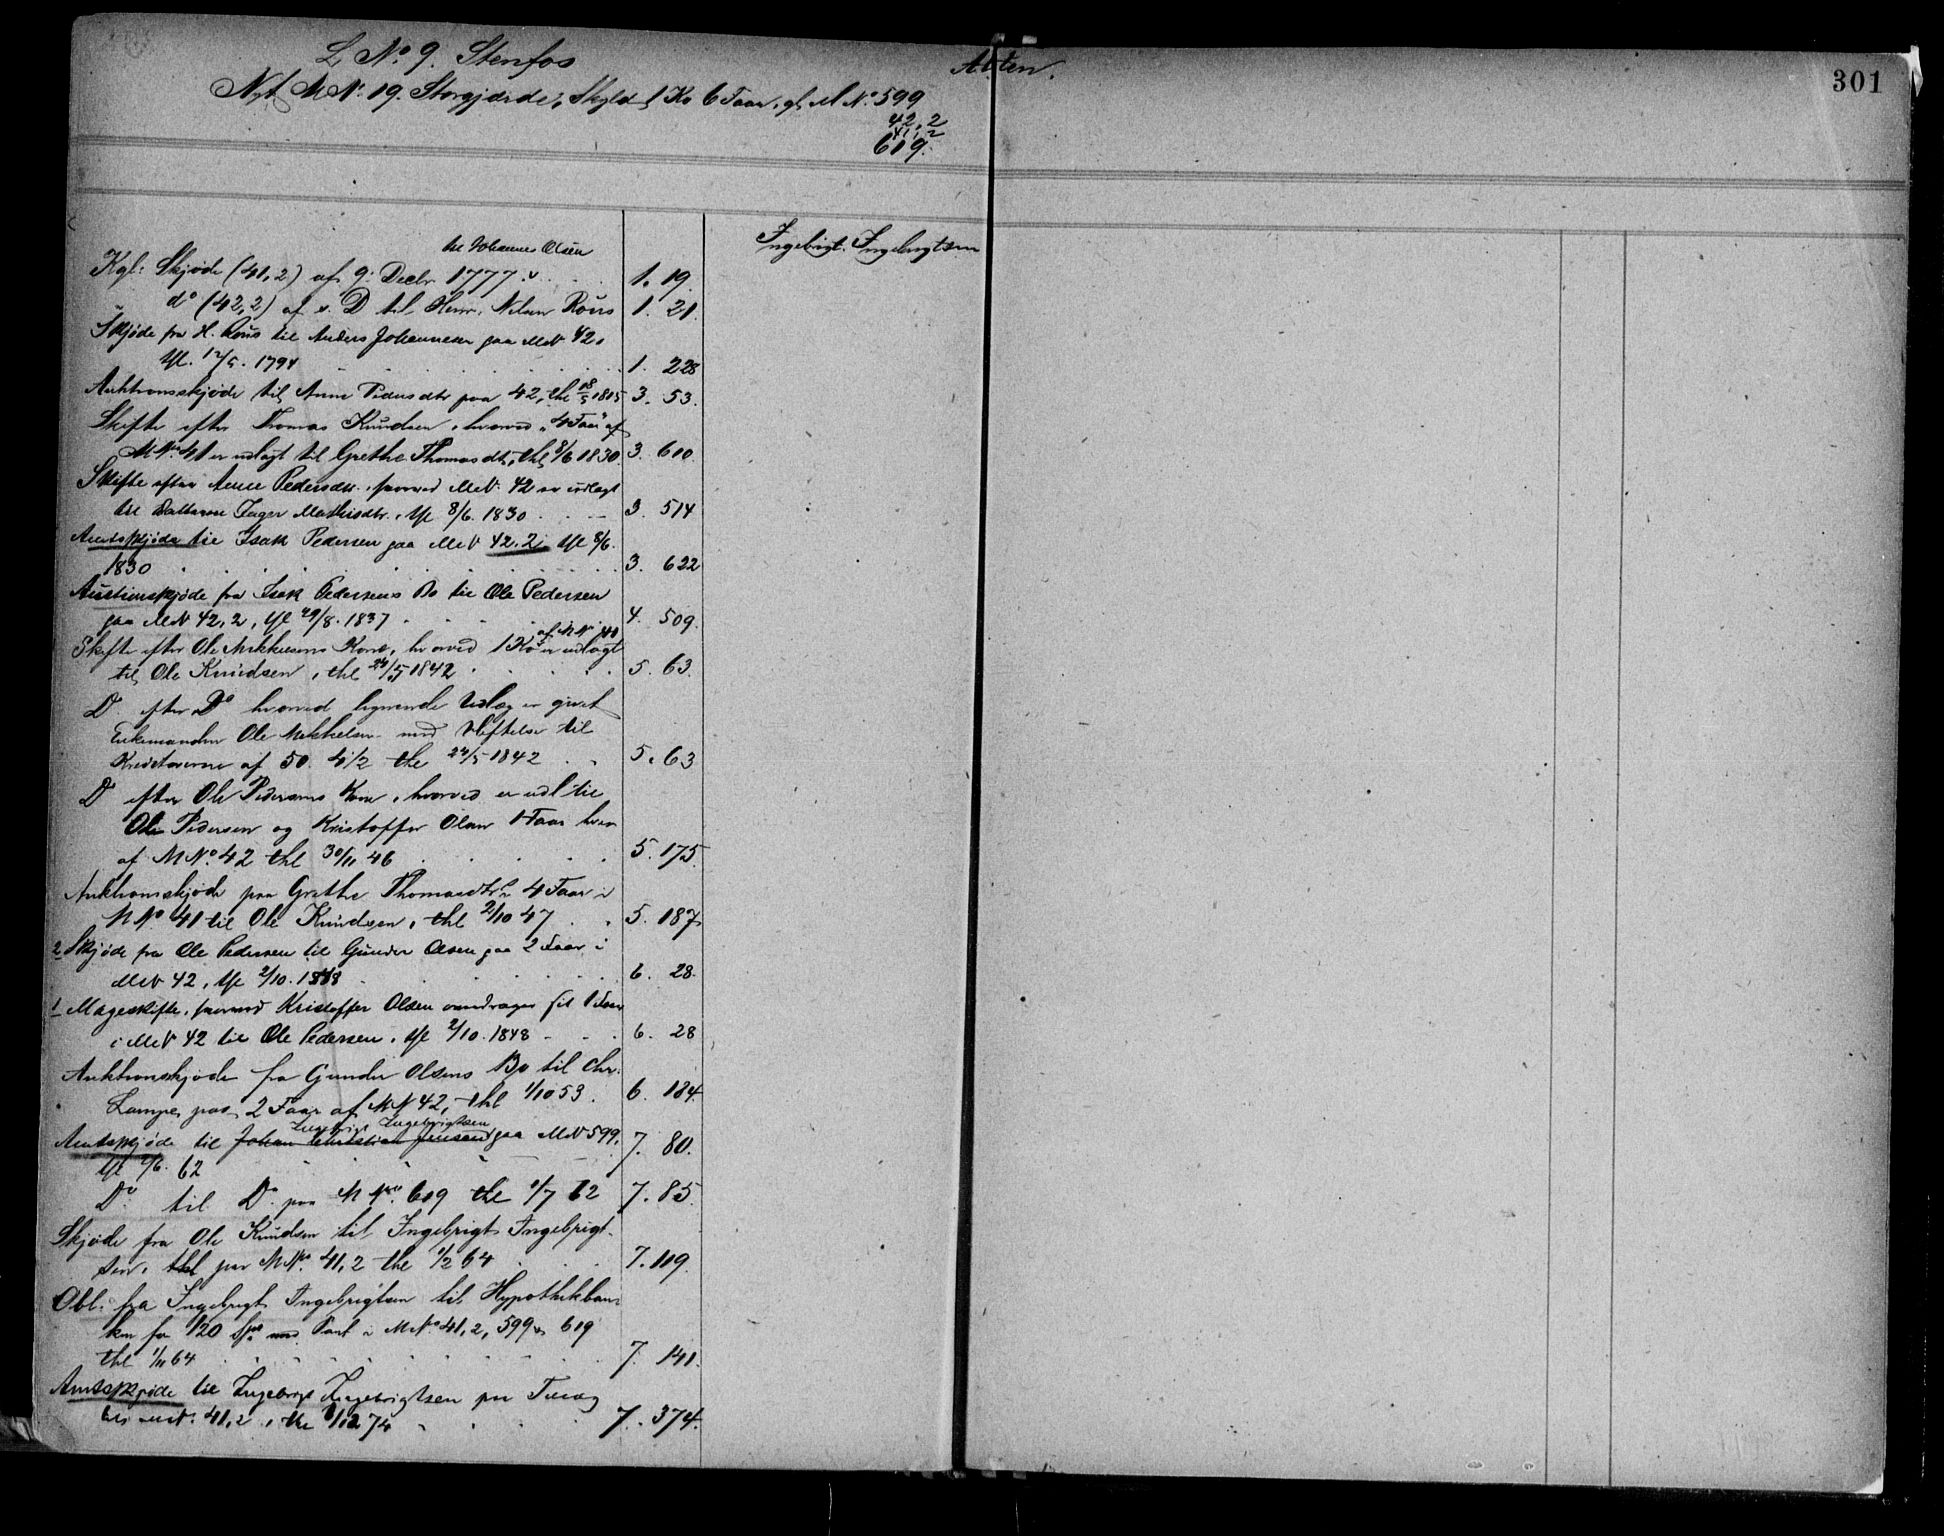 L. No. 9. Stenfos
Alten.
301
Nyt M No. 19. Storgjærde, Skyld 1 Ko 6 Faar, gl. M No. 599
42,2
41,2
619.
til Johannes Olsen
Ingebrigt Ingebrigtsen
Kgl: Skjøde (41,2) af 9 Decbr 1777 . . . 1. 19.
do (42,2) af s. D til Henr. Nilsen Röus 1. 21.
Skjøde fra H. Röus til Anders Johannesen paa M.N 42,
thl. 12/5. 1794 . . . 1. 228
Auktionsskjøde til Anne Pedersdtr paa 42, thl 18/5 1815 3. 53.
Skifte efter Thomas Knudsen, hvorved 4 Faar af
M No. 41 er udlagt til Grethe Thomasdtr, thl 8/6 1830. 3. 610.
Skifte efter Anne Pedersdtr., hvorved M.N. 42 er udlagt
til Datteren Inger Mathisdtr., thl 8/6. 1830 . . . 3. 514
Amtsskjøde til Isak Pedersen paa M.N 42.2 thl 8/6.
1830 . . . 3. 622
Auctionsskjøde fra Isak Pedersens Bo til Ole Pedersen
paa M.N 42,2, thl 29/8. 1837 . . . 4. 509.
af M No 41
Skifte efter Ole Mikkelsens Kone, hvorved 1 Ko er udlagt
til Ole Knudsen, thl 24/5 1842 . . . 5. 63.
Do efter Do hvorved lignende Udlæg er givet
Enkemanden Ole Mikkelsen med Heftelse til
Kreditorerne af 50. 4 1/2 thl 24/5 1842 . . 5. 63
Do efter Ole Pedersens Kone, hvorved er udl til
Ole Pedersen og Kristoffer Olsen 1 Faar hver
af M No. 42 thl 30/11 46 . . . 5. 175.
Auktionsskjøde paa Grethe Thomasdtrs 4 Faar i
M No. 41 til Ole Knudsen, thl 2/10 47 . . 5. 187
2 Skjøde fra Ole Pedersen til Gunder Olsen paa 2 Faar i
M.N 42, thl 2/10. 1848 . . . 6. 28.
1 Mageskifte, hvorved Kristoffer Olsen overdrager sit 1 Faar
i M.N 42 til Ole Pedersen, thl 2/10. 1848 . . . 6. 28
Auktionsskjøde fra Gunder Olsens Bo til Chr.
Lampe, paa 2 Faar af M N 42, thl 1/10 53. 6. 184.
Ingebrigt Ingebrigtsen
Amtsskjøde til Johan Christian Jensen paa M.N 599, 7. 80.
thl 2/6. 62
Do til Do paa M No. 619 thl 1/7 62 7. 85.
Skjøde fra Ole Knudsen til Ingebrigt Ingebrigt-
sen, thl paa M No. 41,2 thl 1/2 64 . . . 7. 119.
Obl. fra Ingebrigt Ingebrigtsen til Hypothekban-
ken for 120 Spd med Pant i M No. 41,2, 599 & 619
thl 1/11 64 . . . 7. 141.
Amtsskjøde til Ingebrigt Ingebrigtsen paa Tillæg
til M.N. 41,2, thl 1/12 74 . . . 7. 374.